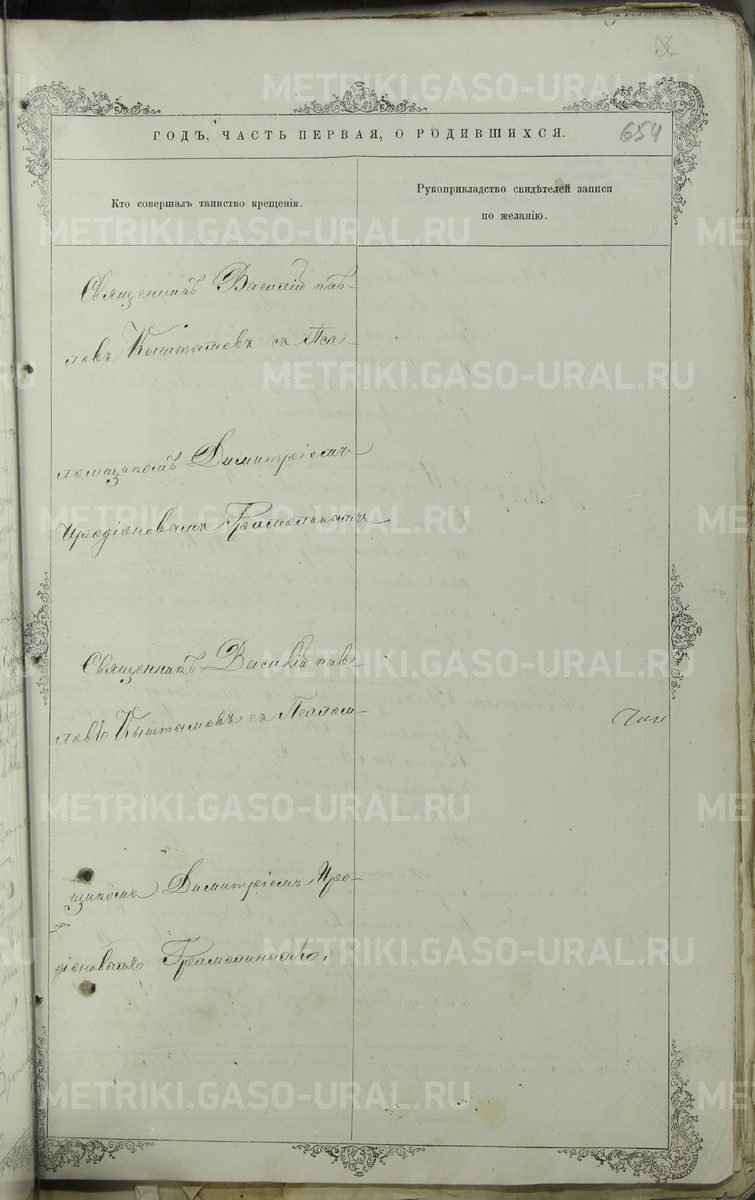 3.
ГОДЪ, ЧАСТЬ ПЕРВАЯ, О РОДИВШИХСЯ. 654
Кто совершалъ таинство крещенія.
Рукоприкладство свидѣтелей записи
по желанію.
Священникъ Василій Пав-
ловъ Кыштымовъ съ Пса-
ломщикомъ Димитріемъ
Иродіоновымъ
Священникъ Василій Пав-
ловъ Кыштымовъ съ Псалом-
щикомъ Димитріемъ Иро-
діоновымъ
METRIKI.GASO-URAL.RU